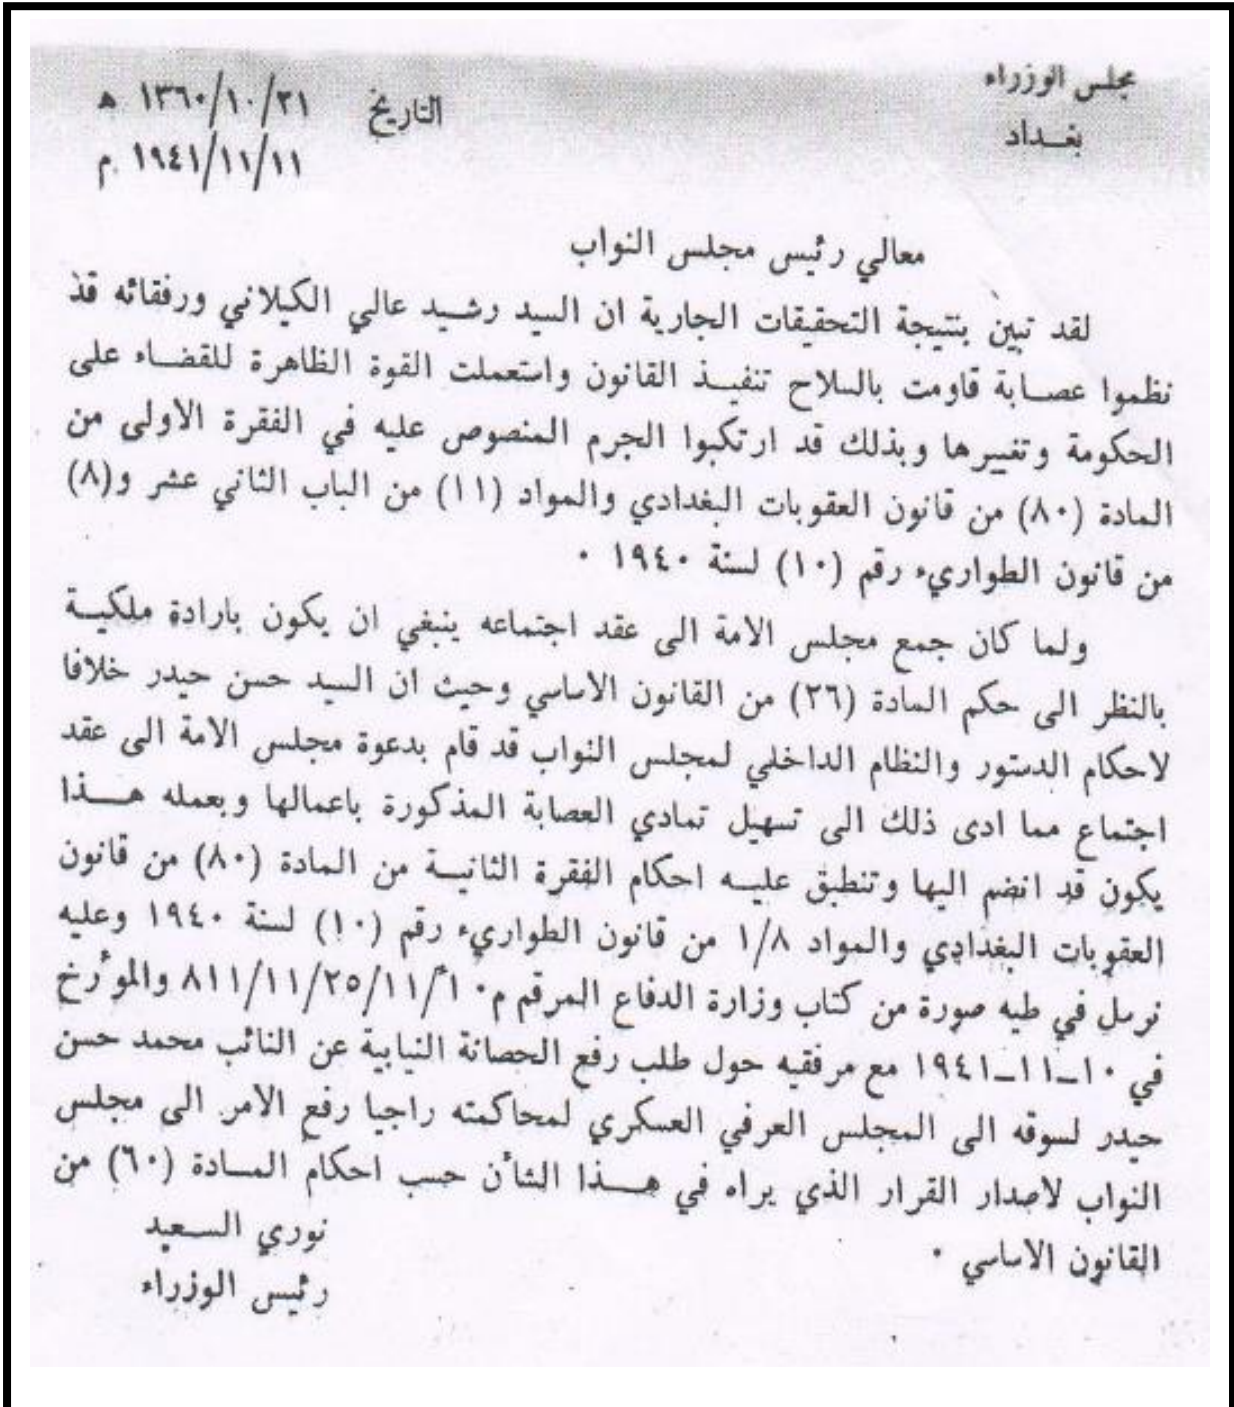 مجلس الوزراء
بغــداد
التاريخ ١٣٦٠/١٠/٢١ ه
١٩٤١/١١/١١ م.
معالي رئيس مجلس النواب
لقد تبين بنتيجة التحقيقات الجارية ان السيد رشــيد عالي الكيلاني ورفقائه قد
نظموا عصــابة قاومت بالسلاح تنفيــذ القانون واستعملت القوة الظاهرة للقضــاء على
الحكومة وتغييرها وبذلك قد ارتكبوا الجرم المنصوص عليه في الفقرة الاولى من
المادة (٨٠) من قانون العقوبات البغدادي والمواد (١١) من الباب الثاني عشر و(٨)
من قانون الطواريء رقم (١٠) لسنة ١٩٤٠ ٠
ولما كان جمع مجلس الامة الى عقد اجتماعه ينبغي ان يكون بارادة ملكيــة
بالنظر الى حكم المادة (٢٦) من القانون الاساسي وحيث ان السيد حسن حيدر خلافا
لاحكام الدستور والنظام الداخلي لمجلس النواب قد قام بدعوة مجلس الامة الى عقد
اجتماع مما ادى ذلك الى تسهيل تمادي العصابة المذكورة باعمالها وبعمله هــــذا
يكون قد انضم اليها وتنطبق عليــه احكام الفقرة الثانيــة من المادة (٨٠) من قانون
العقوبات البغدادي والمواد ١/٨ من قانون الطواريء رقم (١٠) لسنة ١٩٤٠ وعليه
نرسل في طيه صورة من كتاب وزارة الدفاع المرقم م٠ ١أ/٨١١/١١/٢٥/١١ والمؤرخ
في ١٠ــ١١ــ١٩٤١ مع مرفقيه حول طلب رفع الحصانة النيابية عن النائب محمد حسن
حيدر لسوقه الى المجلس العرفي العسكري لمحاكمته راجيا رفع الامر الى مجلس
النواب لاصدار القرار الذي يراه في هــــذا الشأن حسب احكام المــادة (٦٠) من
القانون الاساسي ٠
نوري الســعيد
رئيس الوزراء